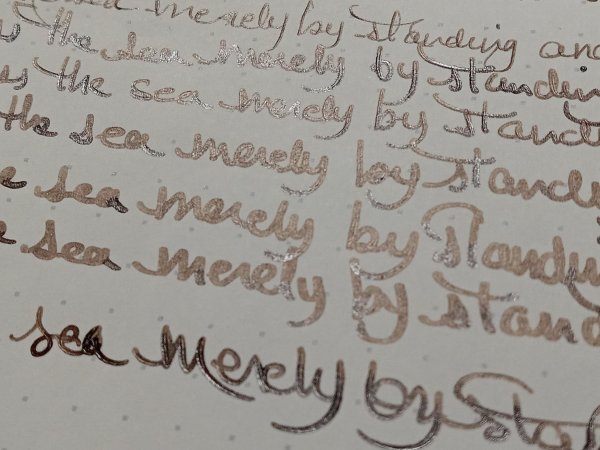 sea merely by standing and
the sea merely by standin
the sea merely by standi
the sea merely by standi
sea merely by standing
sea merely by stand
sea merely by sta